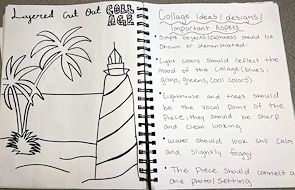 Layered Cut Out COLL
AGE
Collage Ideas/designs/
important Aspects
• Simple objects/calmness should be
shown or demonstrated.
• Light colors should reflect the
mood of the collage (blues,
grays, greens, cool colors).
• Lighthouse and trees should
be the vocal point of the
piece, they should be sharp
and clean looking
• Water should look still calm
and slightly foggy
• The piece should connect as
one photo/setting.